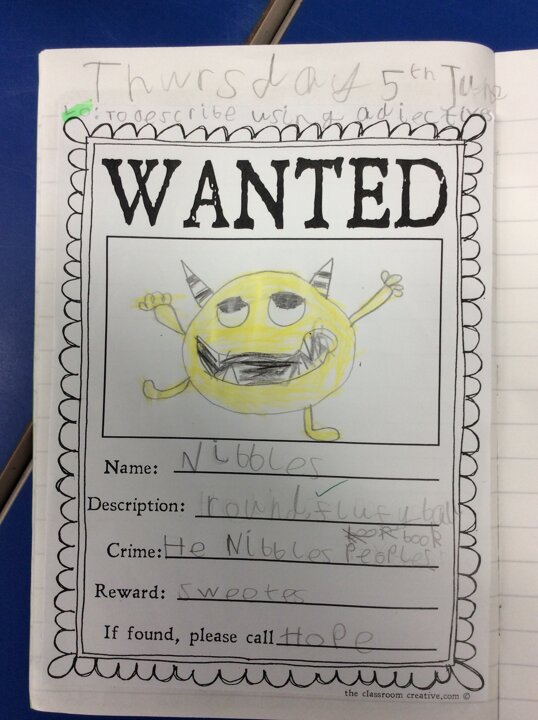 Thursday 5th June
LO: To describe using adjectives
WANTED
Name: Nibbles
Description: round flufy ball
book
Crime: He Nibbles Peoples
Reward: sweetes
If found, please call Hope
the classroom creative.com ©